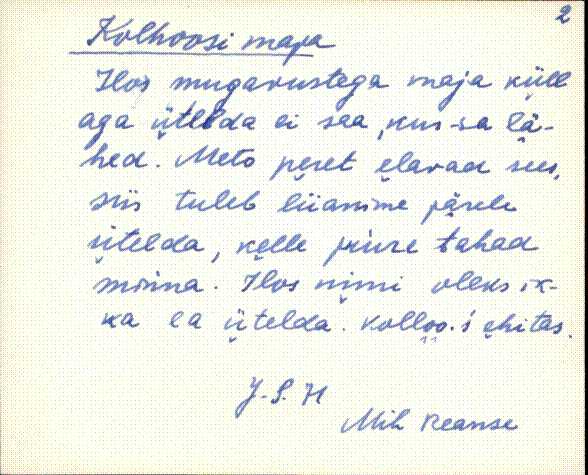 2
Kolhoosi maja
Ilos mugavustega maja küll
aga ütelda ei saa, kus sa lä-
hed. Meto peret elavad sees,
siis tuleb liianime pärele
ütelda, kelle juure tahad
minna. Ilos nimi oleks ik-
ka ea ütelda. Kolloo.s' ehitas.
J. S. H
Mih